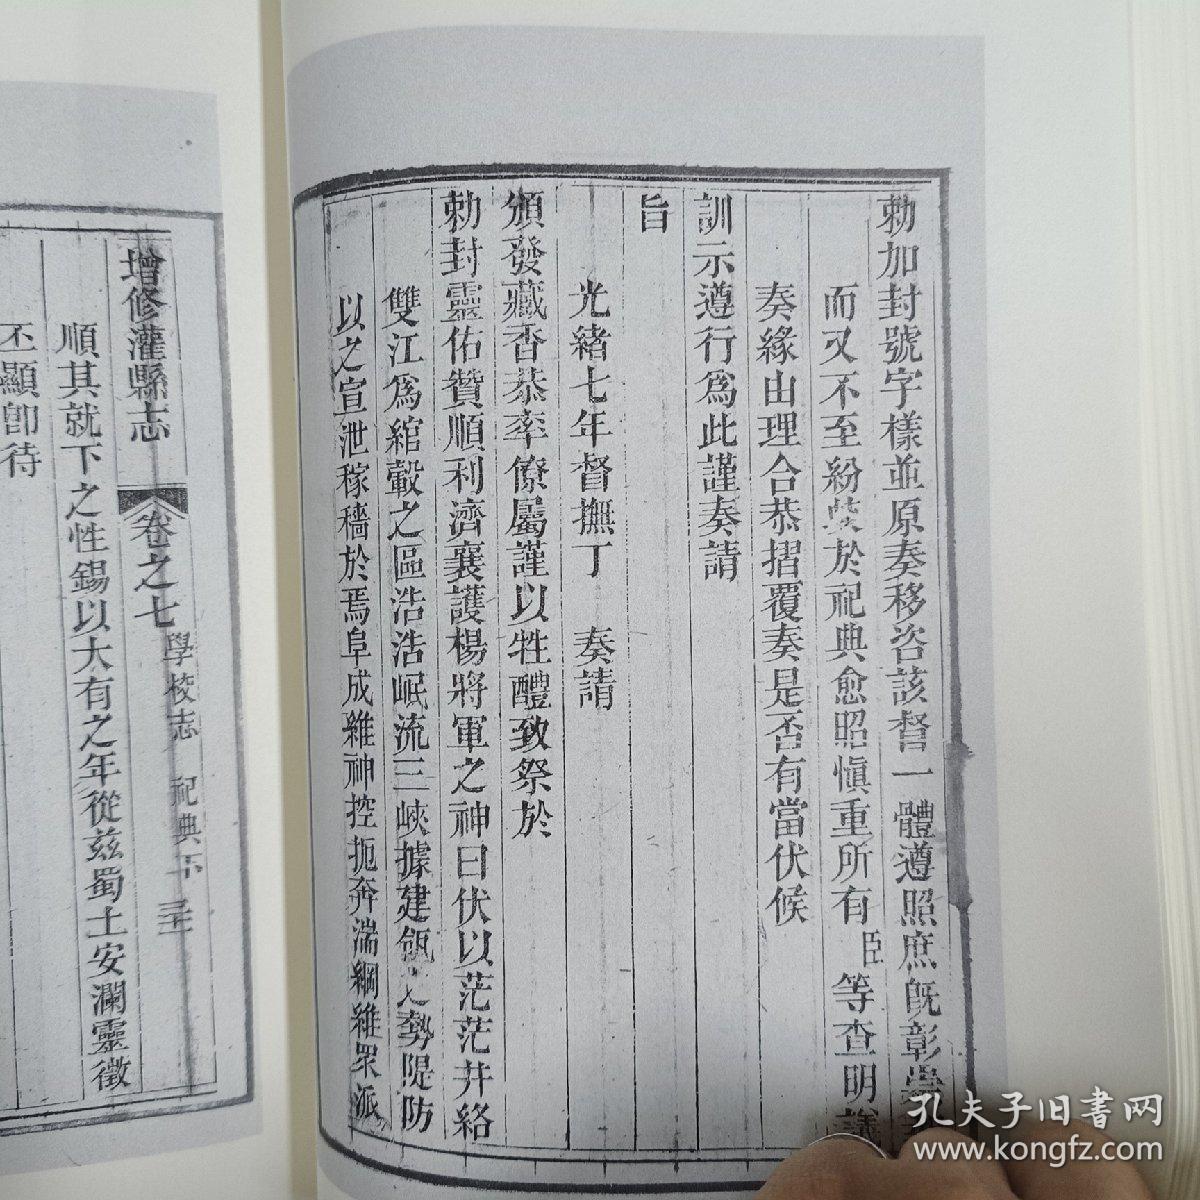 勅加封號字樣並原奏移咨該督一體遵照庶旣彰崇
而又不至紛於祀典愈昭愼重所有臣等查明議
奏緣由理合恭摺覆奏是否有當伏候
訓示遵行爲此謹奏請
旨
光緒七年督撫丁 奏請
頒發藏香恭率僚屬謹以牲醴致祭於
勅封靈佑贊順利濟襄護楊將軍之神曰伏以茫茫井絡
雙江爲綰轂之區浩浩岷流三峽據建瓴之勢隄防
以之宣泄稼穡於焉阜成維神控扼奔湍綱維眾派
增修灌縣志 卷之七 學校志 祀典下
順其就下之性錫以大有之年從兹蜀土安瀾靈徵
丕顯卽待
孔夫子旧书网
www.kongfz.com